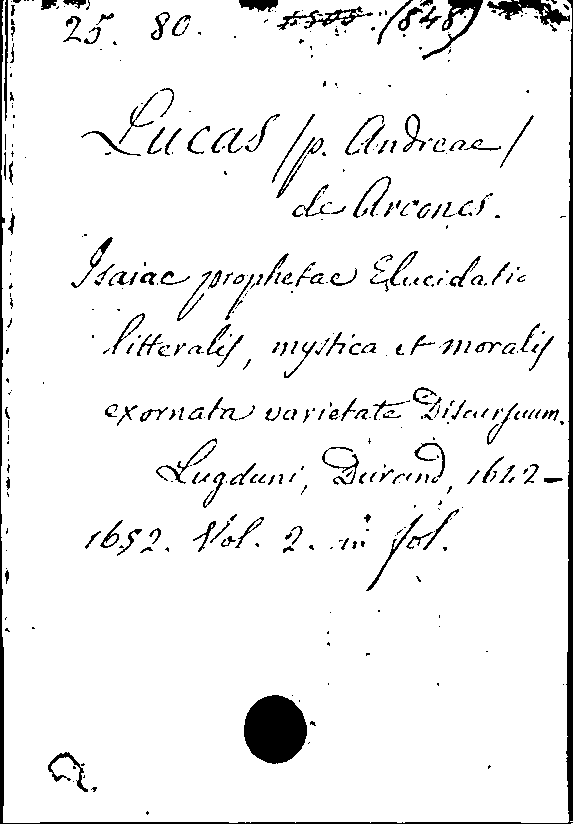 25. 80. (848)
Lucas /p. Andreae/
de Arcones.
Isaiae prophetae Elucidatio
litteralis, mystica et moralis
exornata varietate Discursuum.
Lugduni, Durand, 1642-
1652. Vol. 2. in fol.